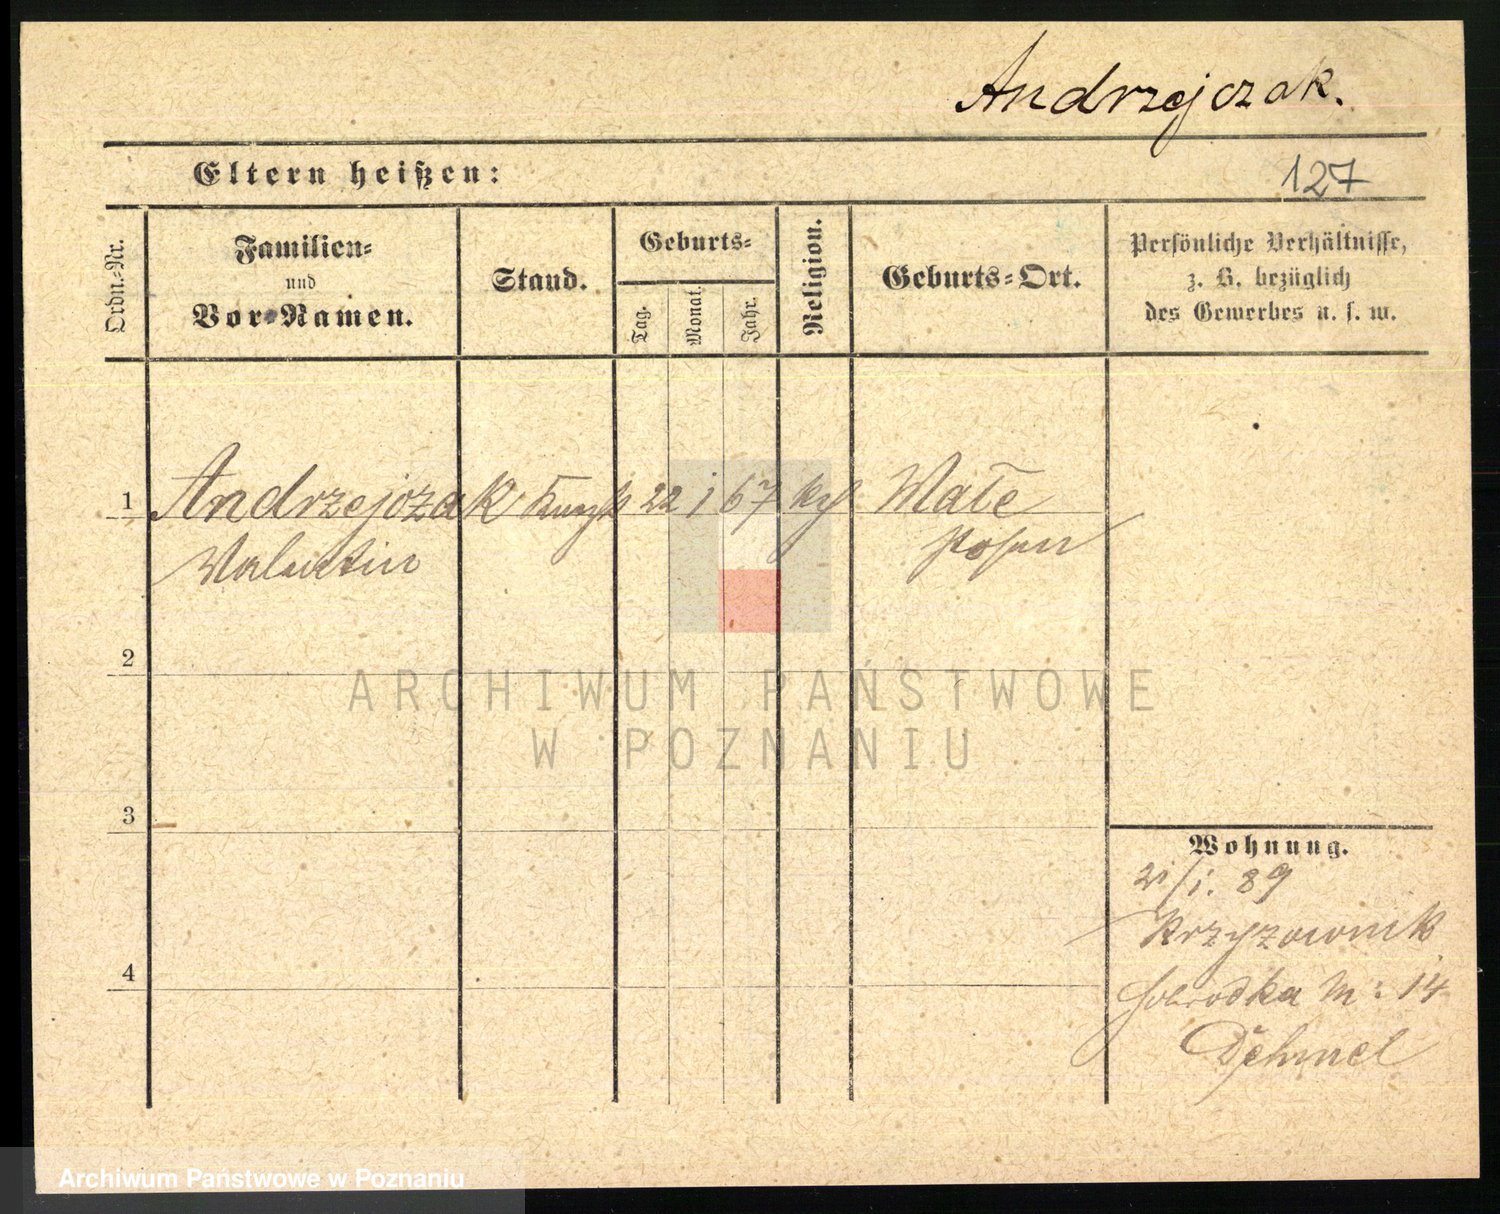 Andrzejczak.
Eltern heißen:
127
Ordn.-Nr.
Familien-
und
Vor-Namen.
Stand.
Geburts-
Tag.
Monat.
Jahr.
Religion.
Geburts-Ort.
Persönliche Verhältnisse,
z. B. bezüglich
des Gewerbes u. s. w.
1 Andrzejczak 22 1 67 Małe
Valentin Posen
2
3
4
Wohnung.
/1. 89
Krzyzownik
14
Dehmel
ARCHIWUM PAŃSTWOWE
W POZNANIU
Archiwum Państwowe w Poznaniu